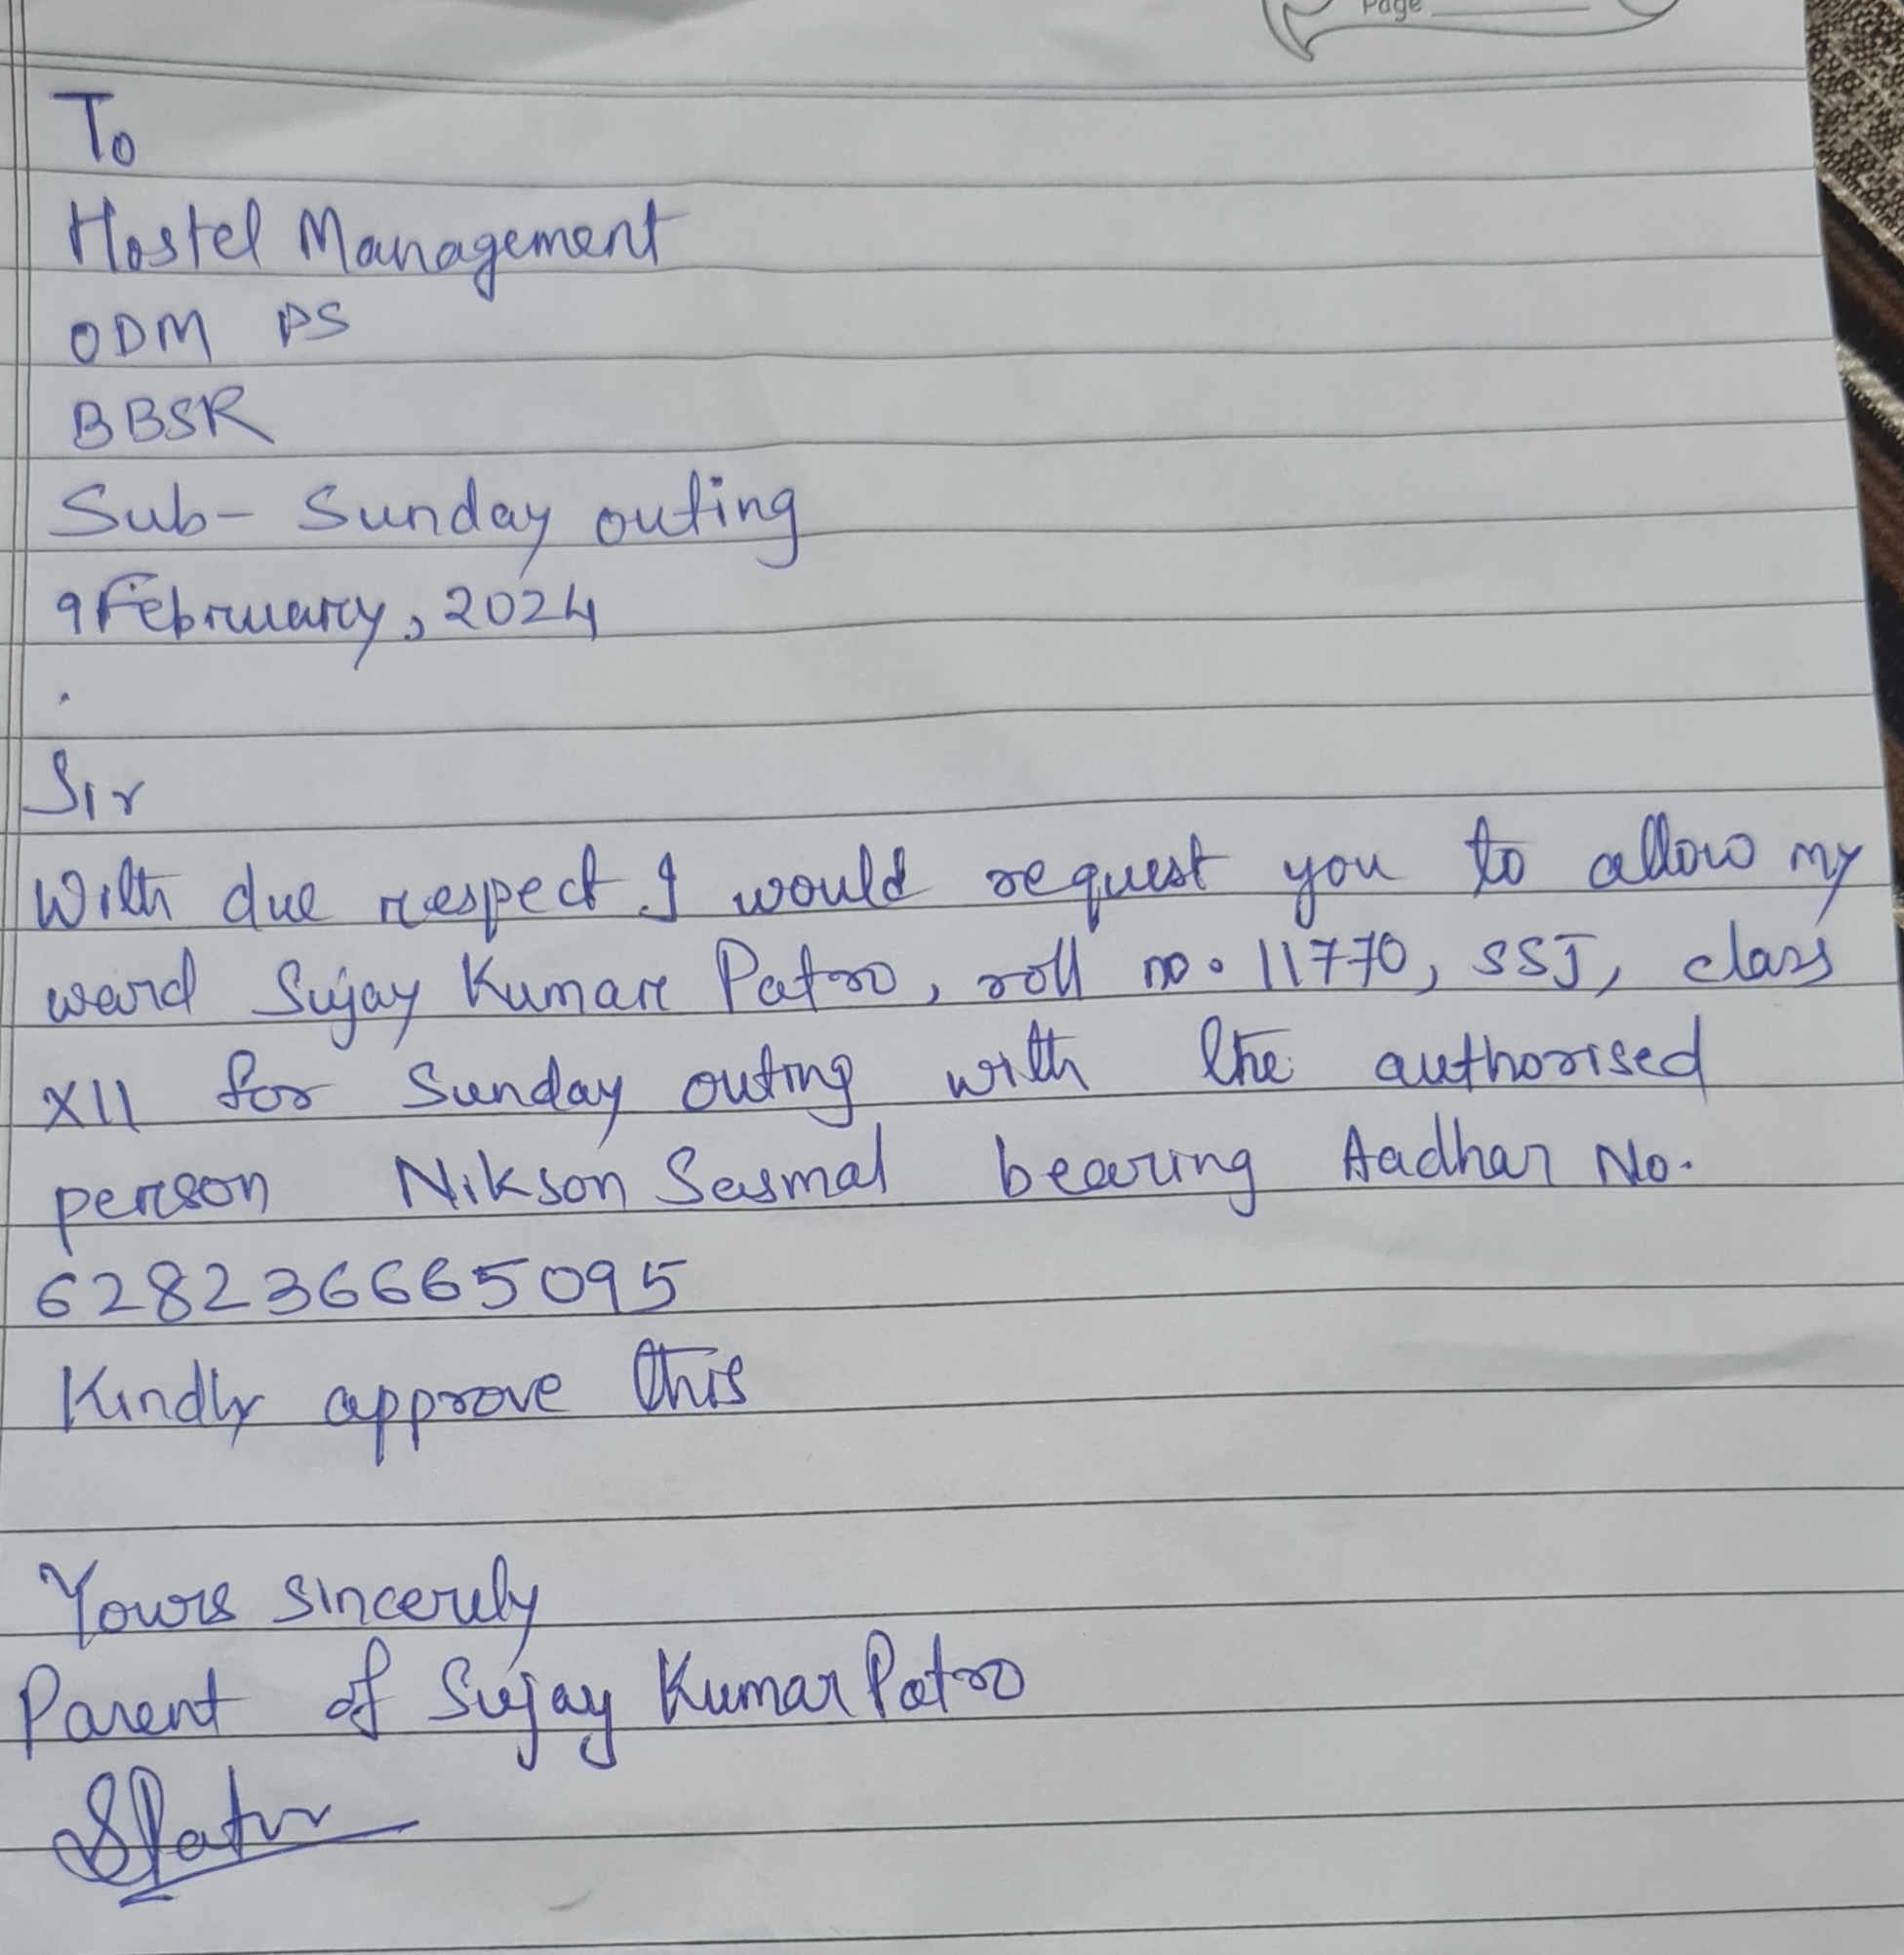 Page
To
Hostel Management
ODM PS
BBSR
Sub- Sunday outing
9 February, 2024
.
Sir
With due respect I would request you to allow my
ward Sujay Kumar Patro, roll no. 11770, SSJ, class
XII for Sunday outing with the authorised
person Nikson Sasmal bearing Aadhar No.
628236665095
Kindly approve this
Yours sincerely
Parent of Sujay Kumar Patro
SPatro